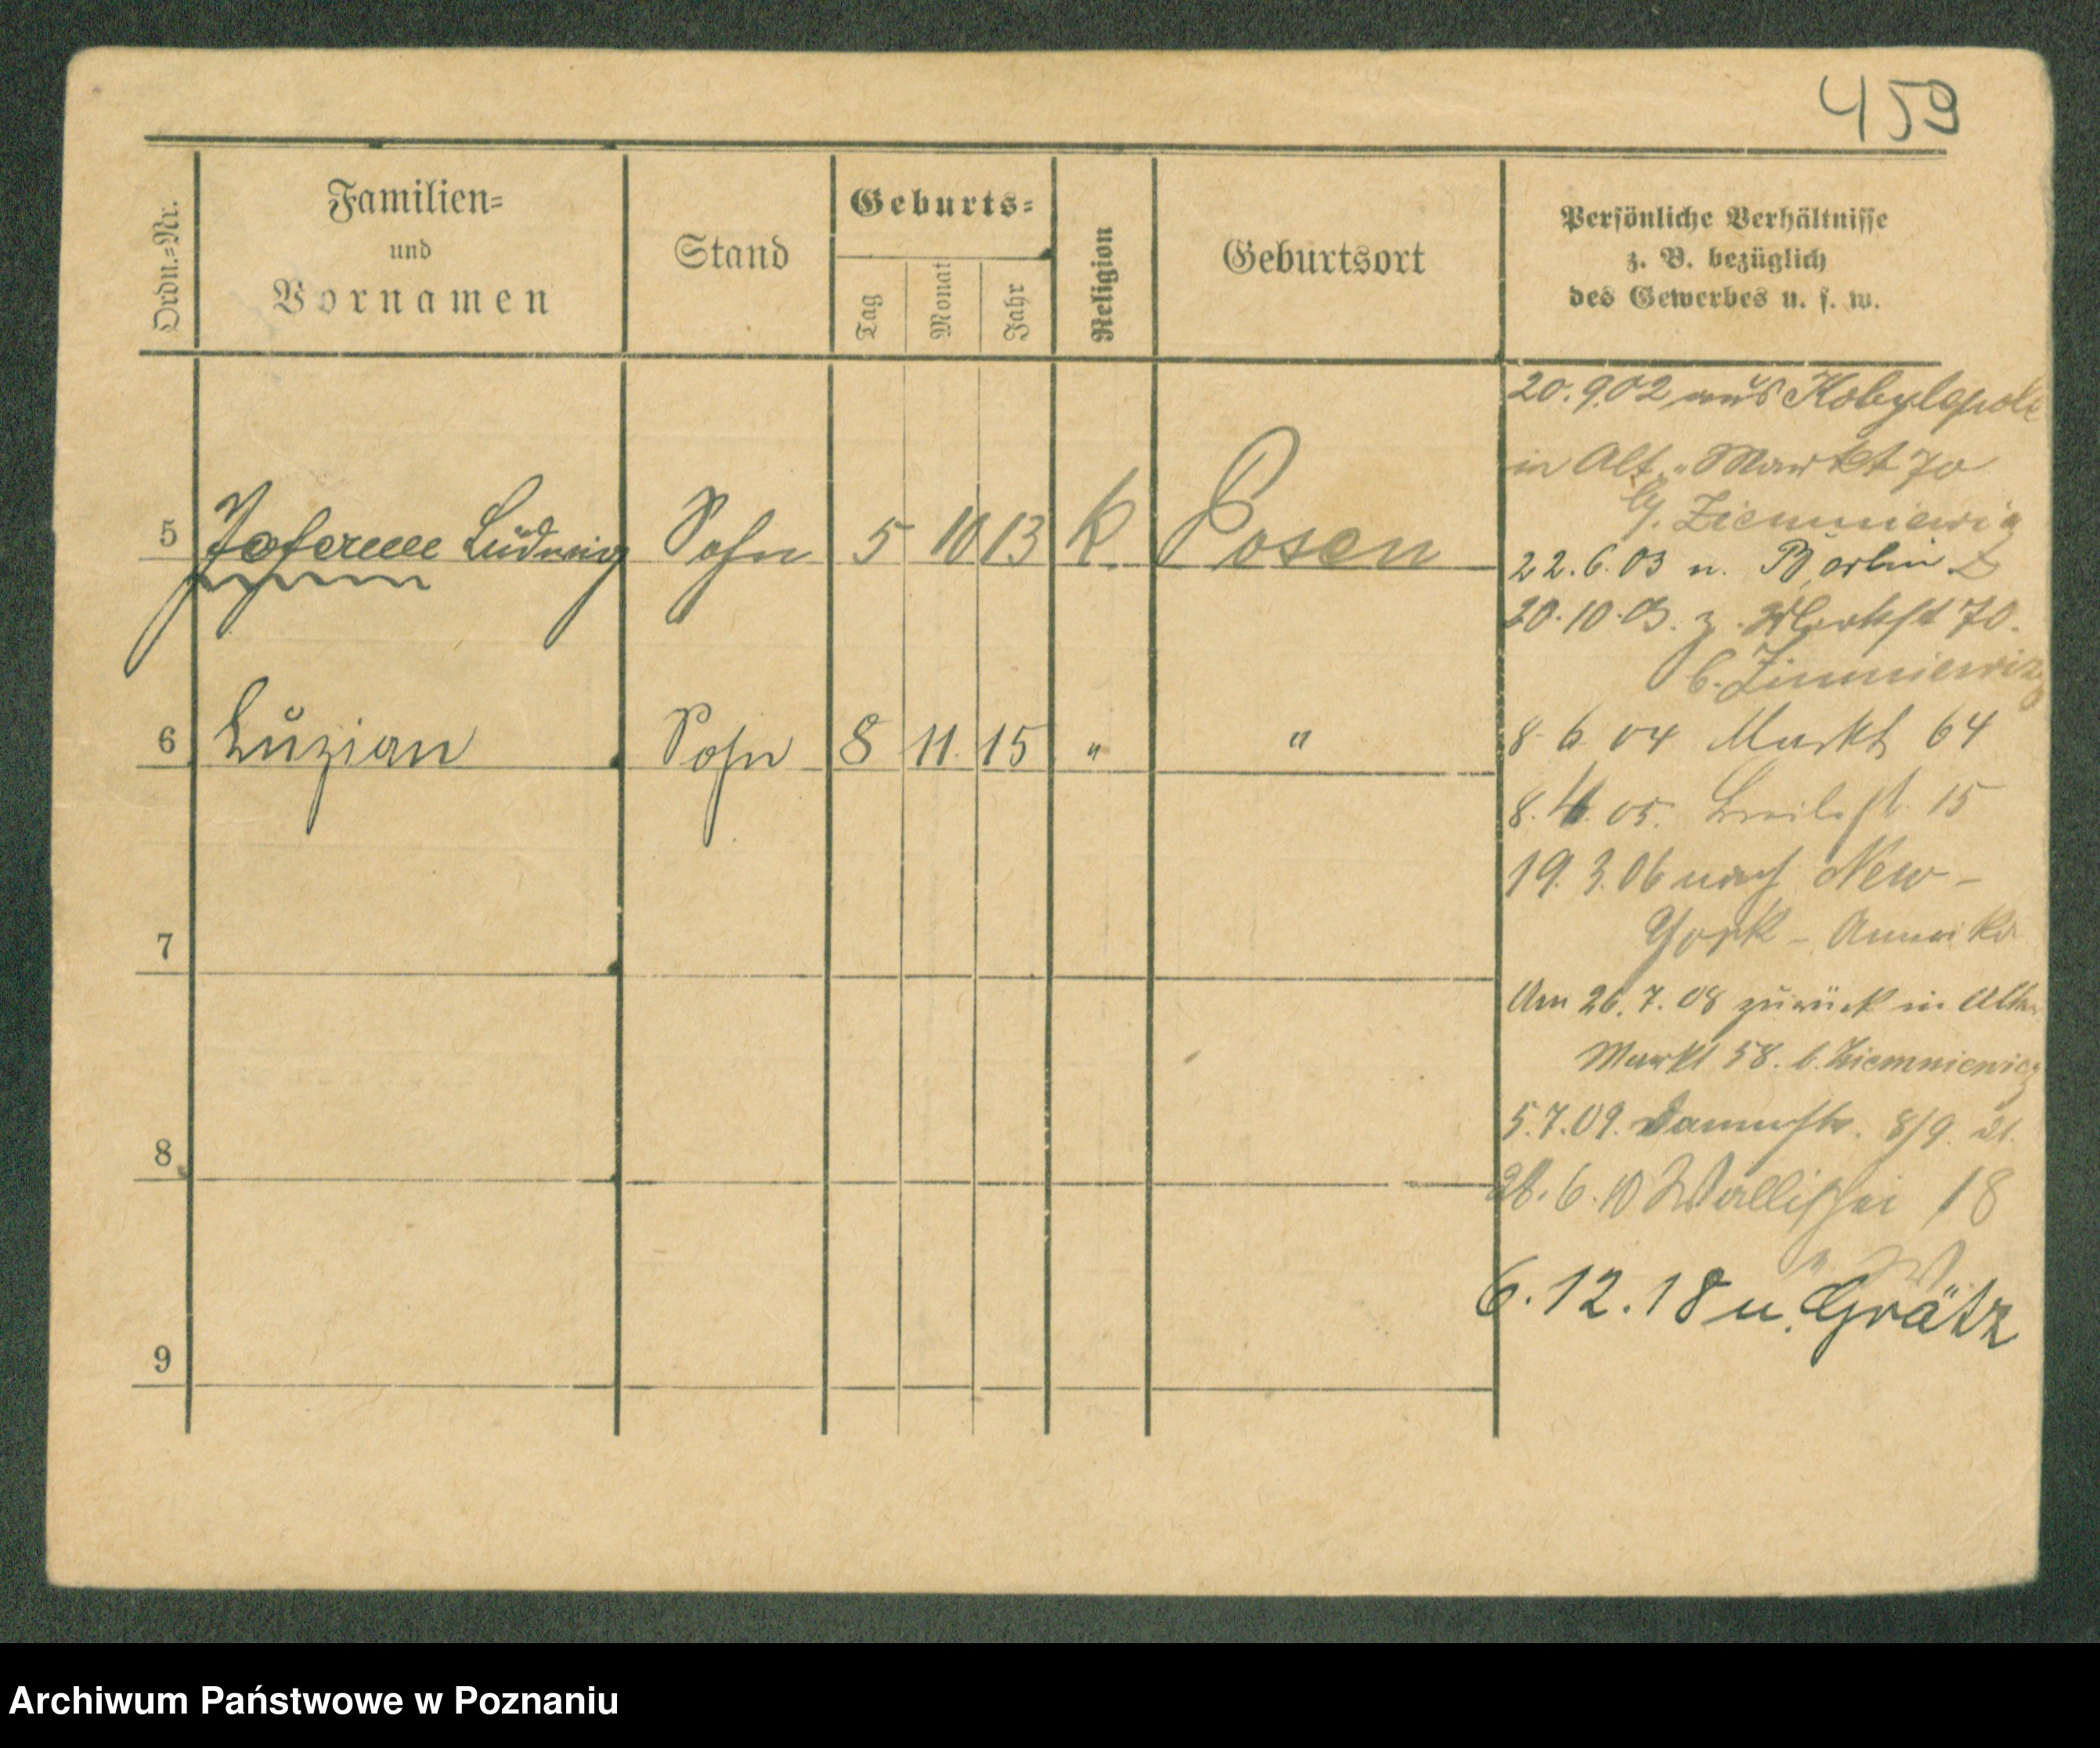 459
Ordn.=Nr.
Familien=
und
Vornamen
Stand
Geburts=
Tag
Monat
Jahr
Religion
Geburtsort
Persönliche Verhältnisse
z. B. bezüglich
des Gewerbes u. s. w.
5 Johann Ludwig Sohn 5 10 13 K. Posen
6 Luzian Sohn 8 11. 15 " "
7
8
9
20.9.02 aus Kobylepole
in Alt. Markt 70
Ziemniewicz
22.6.03 n. Berlin
20.10.03. z. Markt 70.
b. Zimniewicz
8 6 04 Markt 64
8. 4. 05. Breitestr. 15
19. 3. 06 nach New-
York - Amerika
Am 26. 7. 08 zurück in Alter
Markt 58. b. Ziemniewicz
5. 7. 09. Dammstr. 8/9
28. 6. 10 Wallischei 18
6. 12. 18 n. Grätz
Archiwum Państwowe w Poznaniu